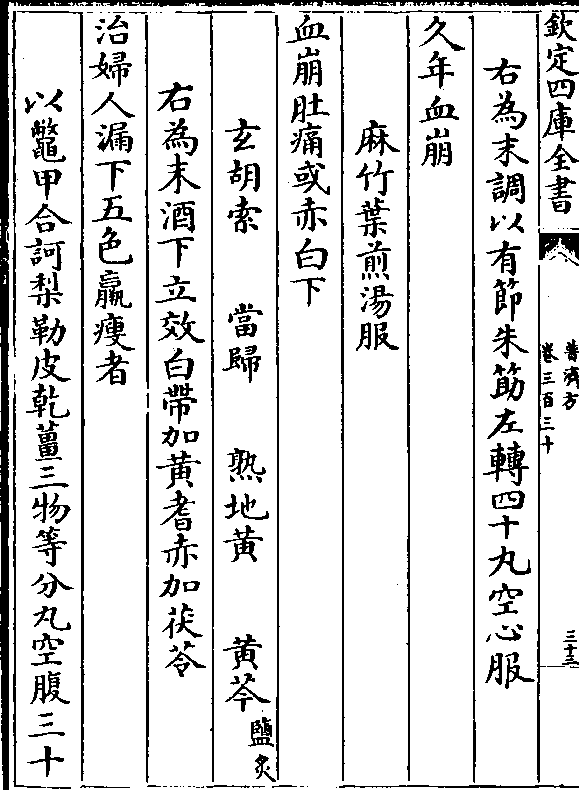 欽定四庫全書
普濟方
卷三百三十
三十三
右為末調以有節朱筯左轉四十丸空心服
久年血崩
麻竹葉煎湯服
血崩肚痛或赤白下
玄胡索 當歸 熟地黄 黄芩鹽炙
右為末酒下立效白帶加黄耆赤加茯苓
治婦人漏下五色羸瘦者
以鼈甲合訶梨勒皮乾薑三物等分丸空腹三十